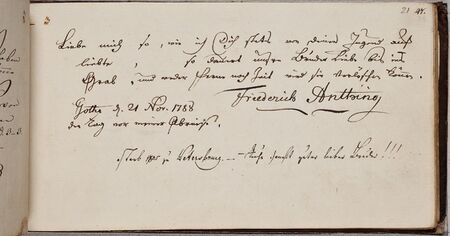 21 44.
Liebe mich so, wie ich Dich stets von deiner Jugend auf
liebte, so dauert unsre Bruder Liebe bis ins
Grab, und weder Ferne noch Zeit wird sie verlöschen können.
Gotha d. 21 Nov. 1788
den Tag vor meiner Abreise.
Friederich Anthing
starb 1805 zu Petersburg — Ruhe sanft guter lieber Bruder!!!